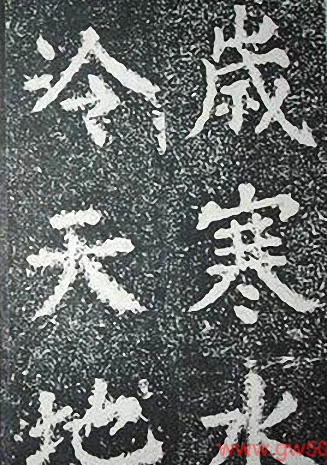 歲寒水
冷天地
www.gw50